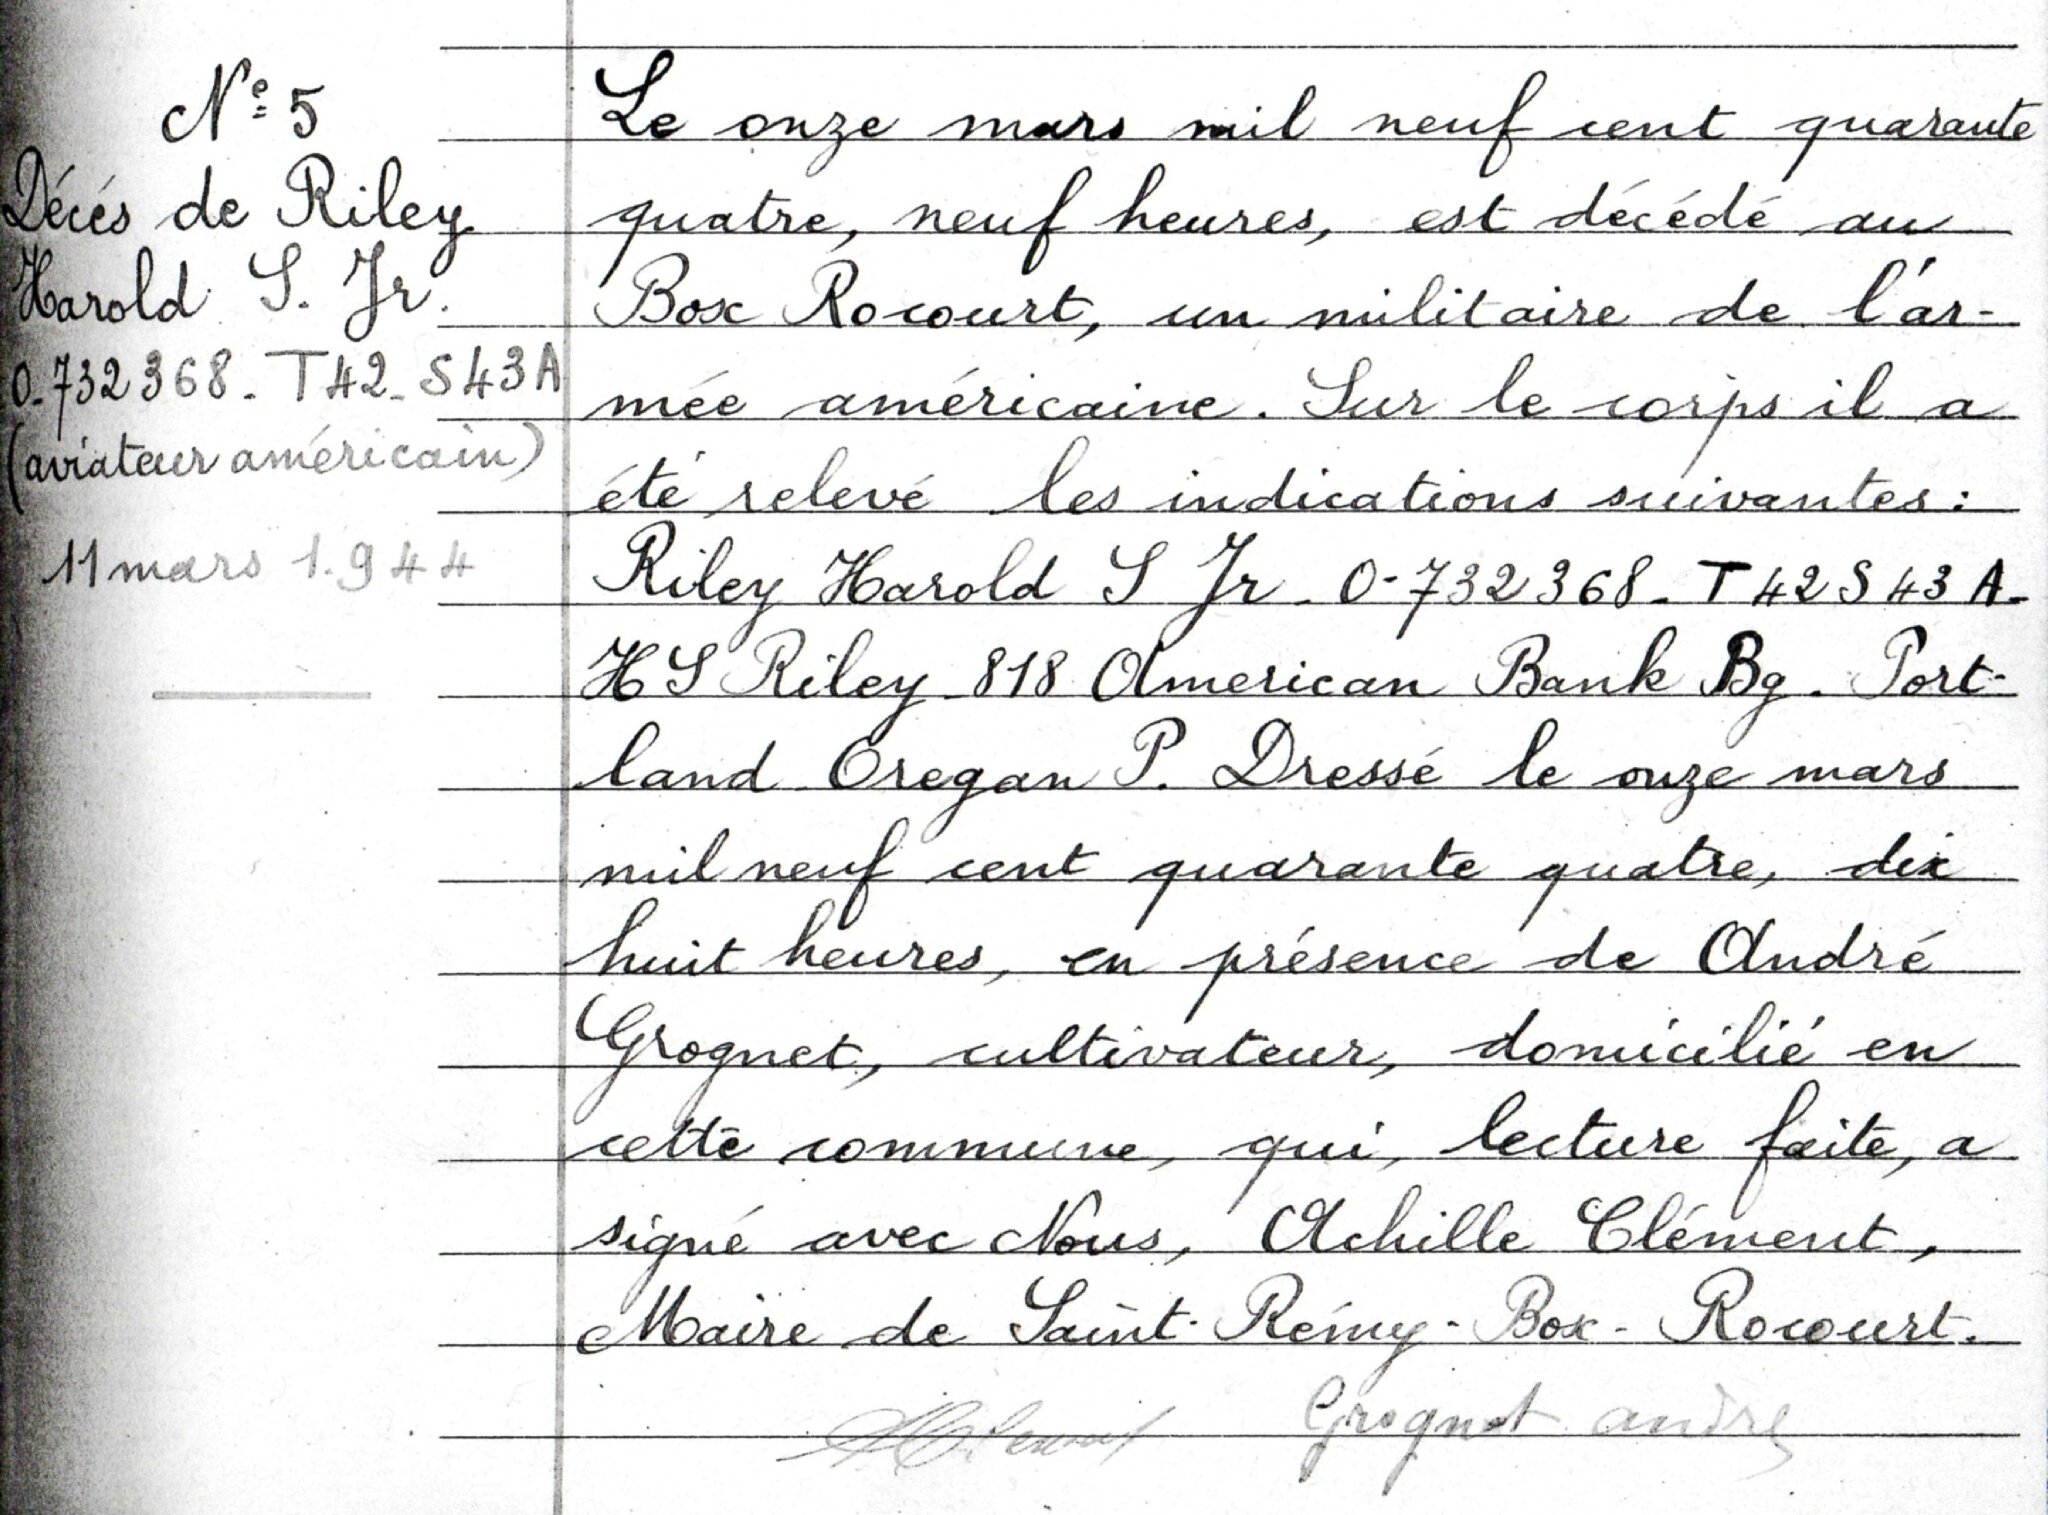 N° 5
Décés de Riley
Harold S. Jr.
0-732368. T42. S43A
(aviateur américain)
11 mars 1.944
Le onze mars mil neuf cent quarante
quatre, neuf heures, est décédé au
Bosc Rocourt, un militaire de l'ar-
mée américaine. Sur le corps il a
été relevé les indications suivantes :
Riley Harold S Jr - 0-732368. T42S43A-
HS Riley - 818 American Bank Bg. Port-
land Oregan P. Dressé le onze mars
mil neuf cent quarante quatre, dix
huit heures, en présence de André
Grognet, cultivateur, domicilié en
cette commune, qui, lecture faite, a
signé avec Nous, Achille Clément,
Maire de Saint-Rémy-Bosc-Rocourt.
Grognet andre